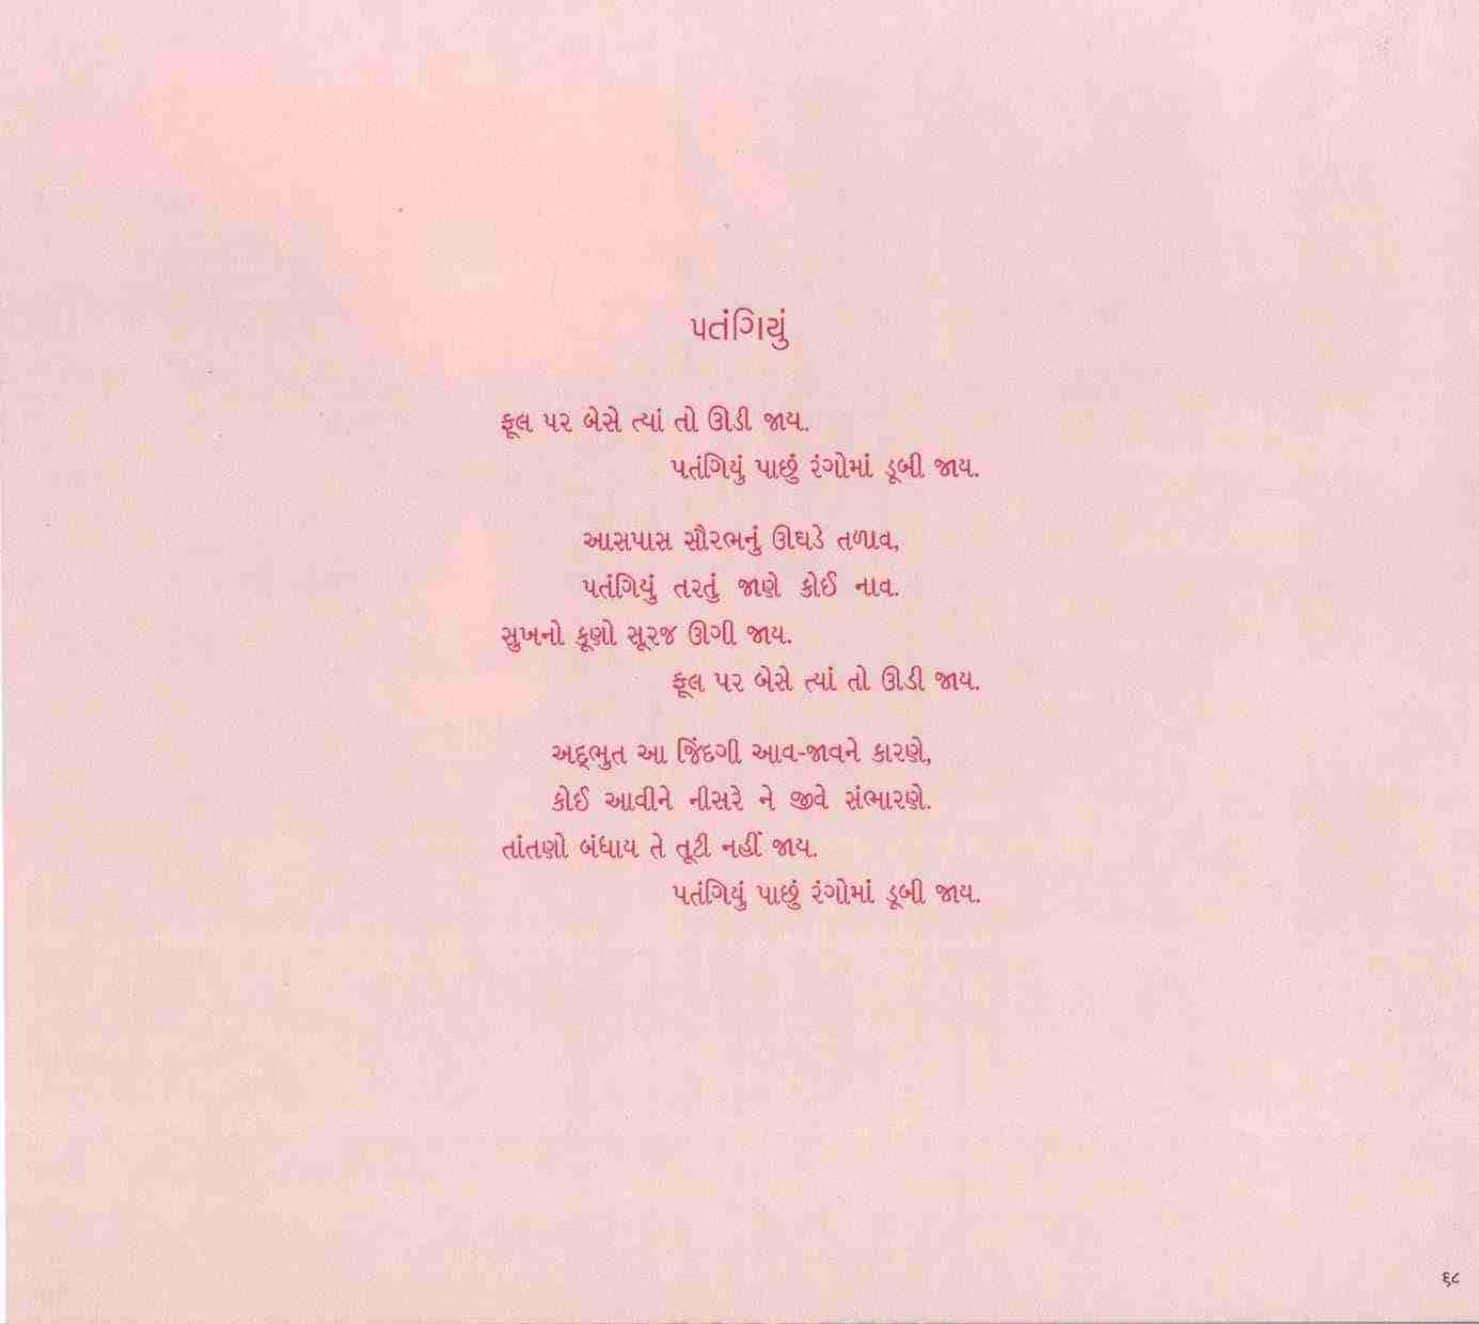 પતંગિયું
ફૂલ પર બેસે ત્યાં તો ઊડી જાય.
પતંગિયું પાછું રંગોમાં ડૂબી જાય.
આસપાસ સૌરભનું ઊઘડે તળાવ,
પતંગિયું તરતું જાણે કોઈ નાવ.
સુખનો કૂણો સૂરજ ઊગી જાય.
ફૂલ પર બેસે ત્યાં તો ઊડી જાય.
અદ્ભુત આ જિંદગી આવ-જાવને કારણે,
કોઈ આવીને નીસરે ને જીવે સંભારણે.
તાંતણો બંધાય તે તૂટી નહીં જાય.
પતંગિયું પાછું રંગોમાં ડૂબી જાય.
૬૮